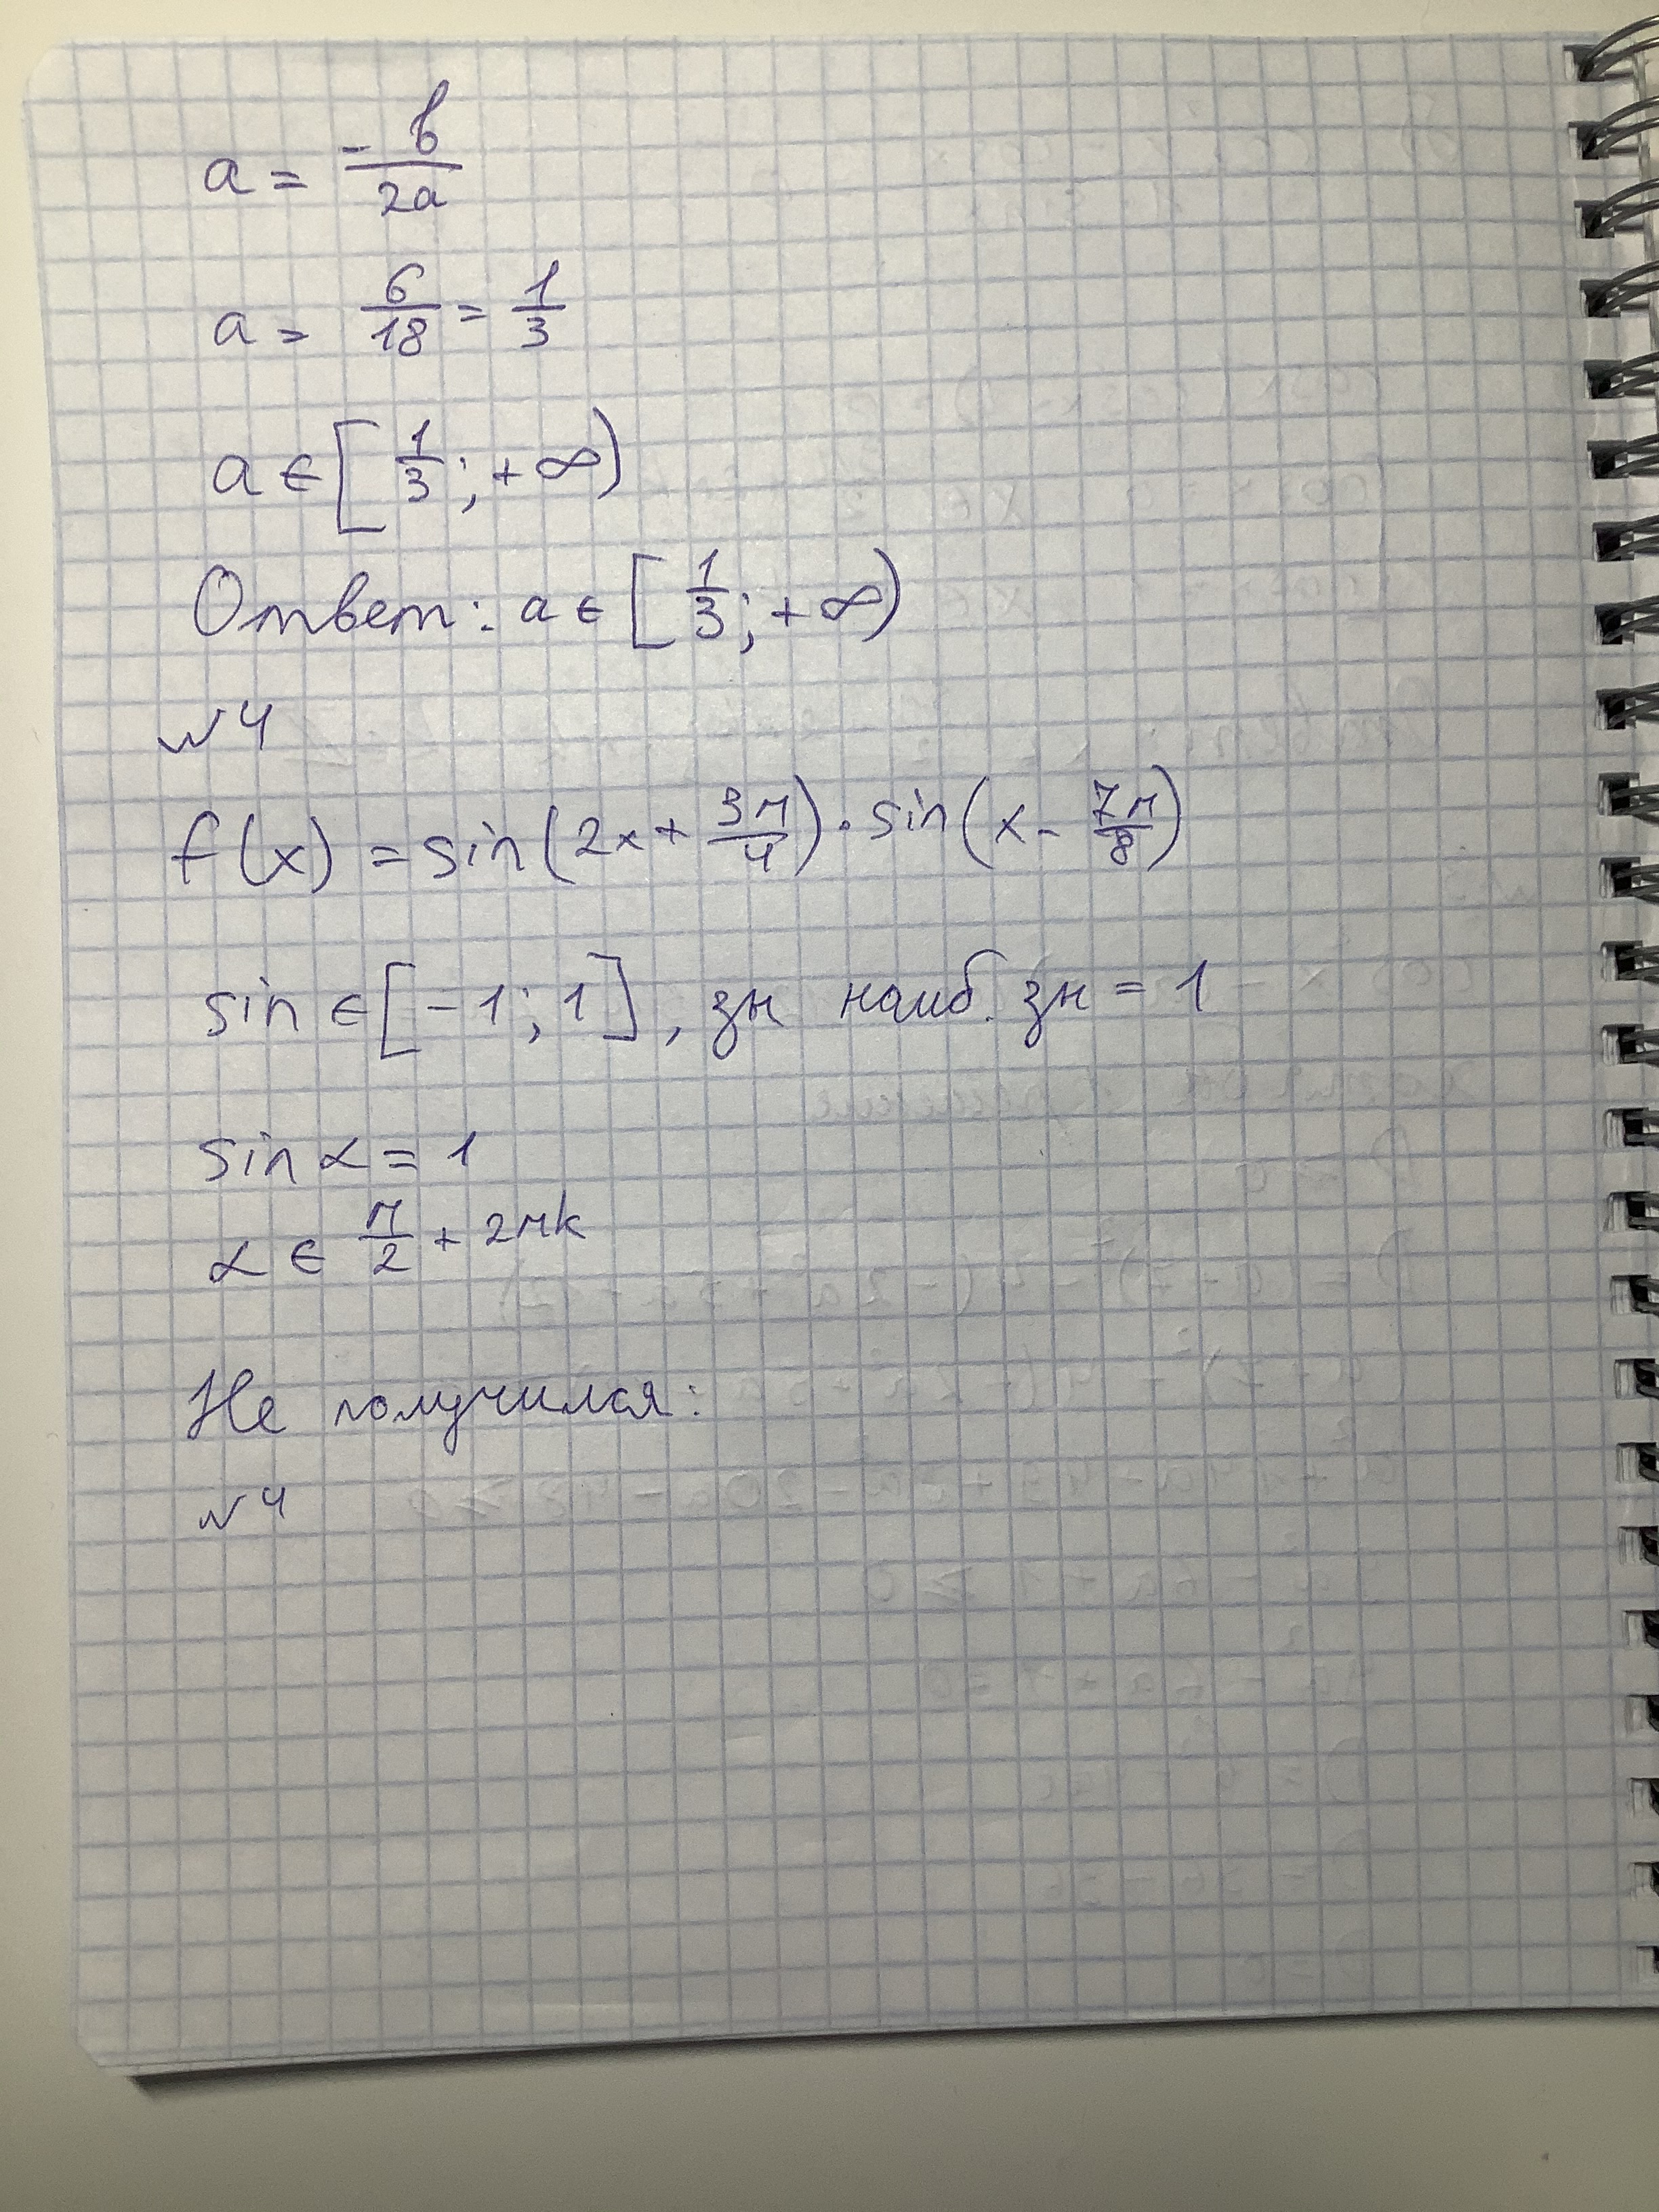 a = -b/2a
a = 6/18 = 1/3
a ∈ [1/3; +∞)
Ответ: a ∈ [1/3; +∞)
№4
f(x) = sin(2x + 3π/4) · sin(x - 7π/8)
sin ∈ [-1; 1], зн наиб. зн = 1
sin α = 1
α ∈ π/2 + 2πk
Не получился:
№4